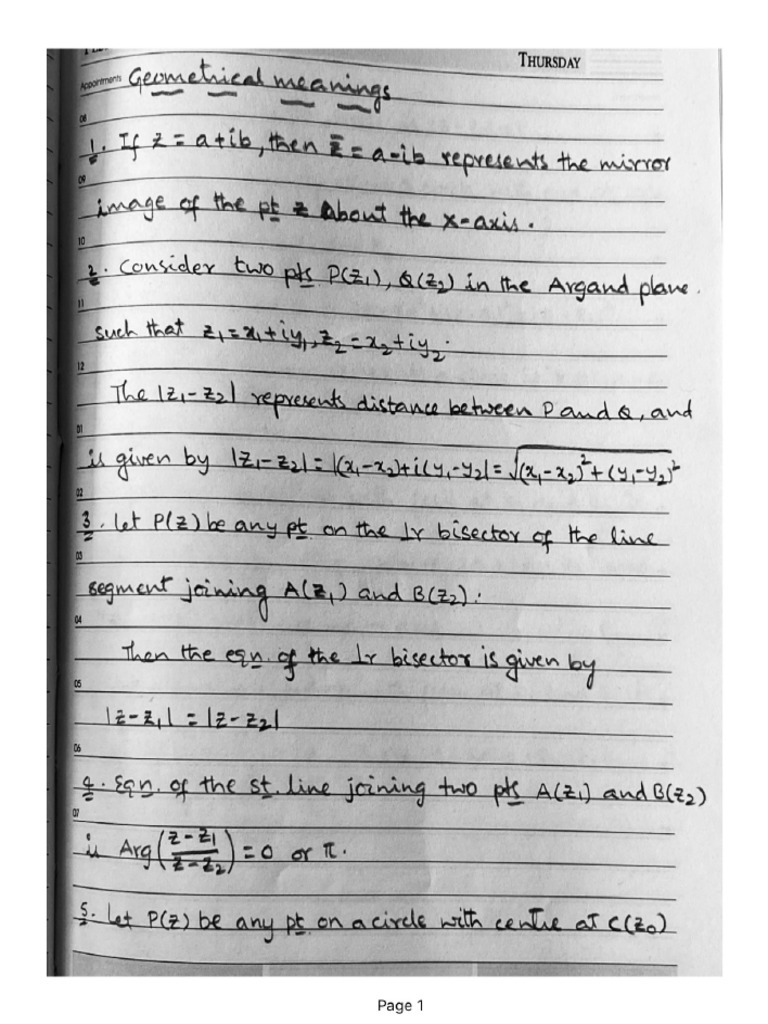 THURSDAY
Appointments Geometrical meanings
08
1. If z = a+ib, then z̅ = a-ib represents the mirror
09
image of the pt z about the x-axis.
10
2. Consider two pts P(z₁), Q(z₂) in the Argand plane.
11
such that z₁=x₁+iy₁, z₂=x₂+iy₂.
12
The |z₁-z₂| represents distance between P and Q, and
01
is given by |z₁-z₂| = |(x₁-x₂)+i(y₁-y₂| = √(x₁-x₂)²+(y₁-y₂)²
02
3. Let P(z) be any pt on the ⊥r bisector of the line
03
segment joining A(z₁) and B(z₂).
04
Then the eqn. of the ⊥r bisector is given by
05
|z-z₁| = |z-z₂|
06
4. Eqn. of the st. line joining two pts A(z₁) and B(z₂)
07
is Arg((z-z₁)/(z-z₂)) = 0 or π.
5. Let P(z) be any pt on a circle with centre at C(z₀)
Page 1